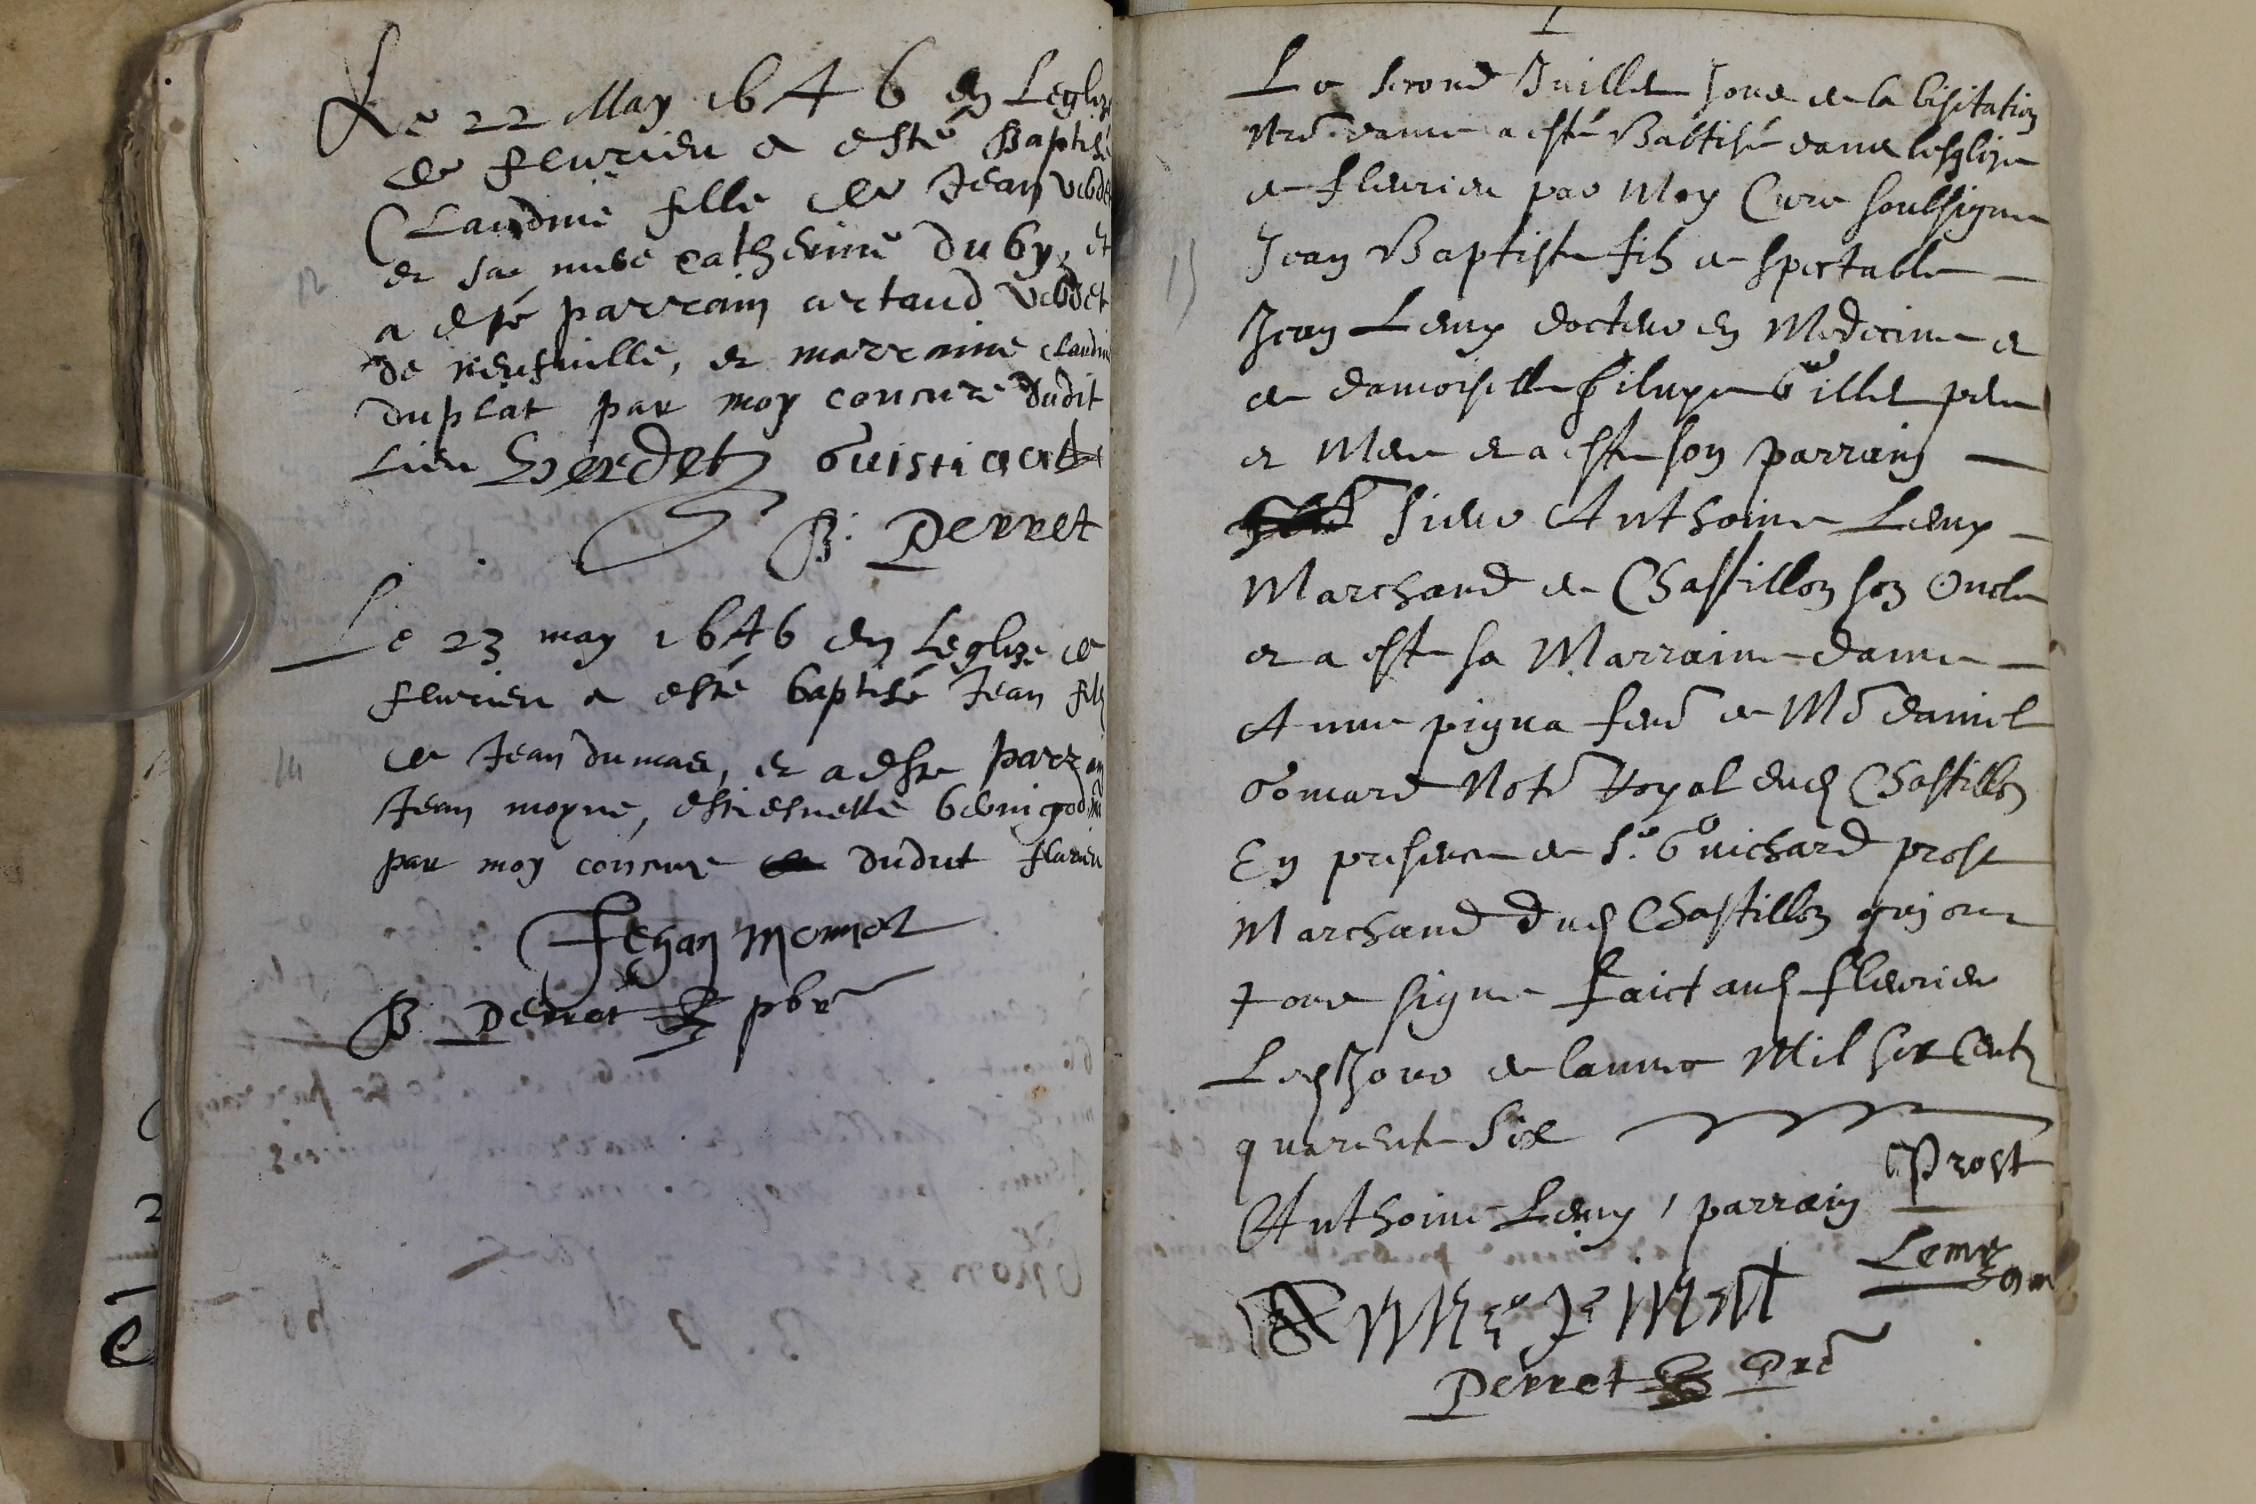 Le 22 May 1646 en Leglize
de fleurieu a esté Baptisé
Claudine fille de Jean
et sa mere catherine duby, et
a esté parrain artaud
de neufuille, et marraine claudin
duplat par moy concuré dudit
Lieu
B. Perret
Le 23 may 1646 en Leglize de
fleurieu a esté baptisé Jean filz
de Jean dumas, et a esté parrain
Jean moyne,
par moy concure dudut fleurieu
Jehan
B. Perret pbr
12
14
1
Le second Juillet Jour de la visitation
Nre dame a esté Babtisé dans lesglize
de fleurieu par Moy Cure soubsigne
Jean Baptiste filz de spectable
Jean Leuux docteur en Medecine et
de damoiselle filupe Guillet pere
et Mere et a este son parrain
sieur Anthoine Leuux
Marchand de Chastillon son Oncle
et a este sa Marraine dame
Anne pigna de Me daniel
Gomard Notre Royal dud Chastillon
En presence de Sr Guichard prost
Marchand dud Chastillon qui ont
tous signe faict aud fleurieu
Led Jour de lannee Mil six Centz
quarente Six
Prost
Anthoine Leuux, parrain
Perret Pre
15